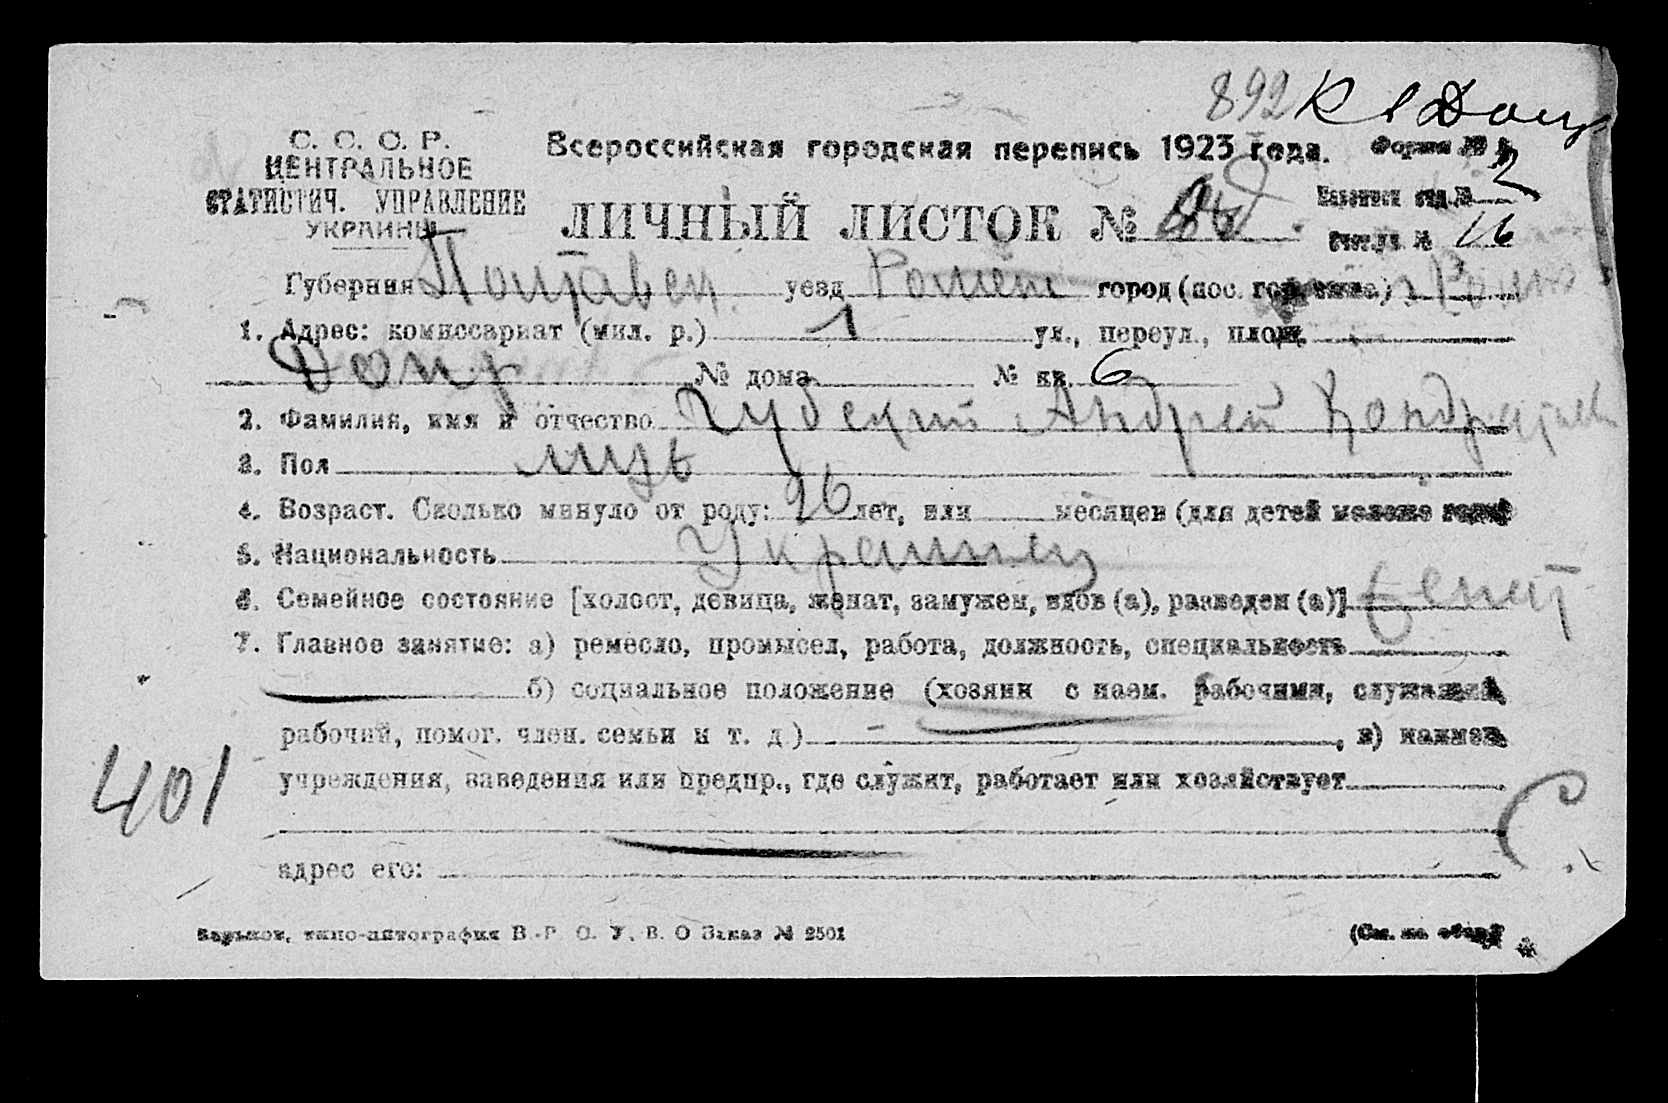 892
С. С. С. Р.
ЦЕНТРАЛЬНОЕ
СТАТИСТИЧ. УПРАВЛЕНИЕ
УКРАИНЫ
Всероссийская городская перепись 1923 года. Форма № 2
ЛИЧНЫЙ ЛИСТОК №
отд. № 2
№ 16
Губерния Полтавск. уезд Ромен город (пос. гор. типа)
1. Адрес: комиссариат (мил. р.) 1 ул., переул., площ.
Допр № дома № кв. 6
2. Фамилия, имя и отчество Андрей Кондратьев
3. Пол муж
4. Возраст. Сколько минуло от роду: 26 лет, или месяцев (для детей моложе года)
5. Национальность Украинец
6. Семейное состояние [холост, девица, женат, замужем, вдов (а), разведен (а)] женат
7. Главное занятие: а) ремесло, промысел, работа, должность, специальность
б) социальное положение (хозяин с наем. рабочими, служащий,
рабочий, помог. член. семьи и т. д.) , в) наимен.
учреждения, заведения или предпр., где служит, работает или хозяйствует
401
адрес его:
Харьков, типо-литография В.-Р. О. У. В. О Заказ № 2501 (См. на обор.)